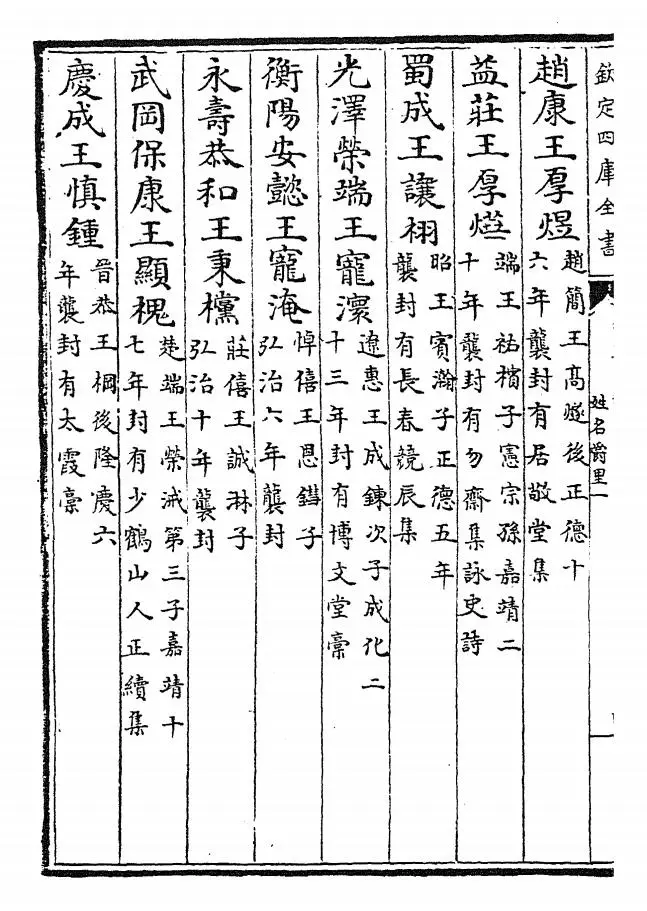 欽定四庫全書
姓名爵里一
趙康王厚煜
趙簡王高燧後正德十
六年襲封有居敬堂集
益莊王厚燁
端王祐檳子憲宗孫嘉靖二
十年襲封有勿齋集詠史詩
蜀成王讓栩
昭王賓瀚子正德五年
襲封有長春競辰集
光澤榮端王寵瀤
遼惠王成鍊次子成化二
十三年封有博文堂稾
衡陽安懿王寵淹
悼僖王恩鐟子
弘治六年襲封
永壽恭和王秉欓
莊僖王誠淋子
弘治十年襲封
武岡保康王顯槐
楚端王榮㳦第三子嘉靖十
七年封有少鶴山人正續集
慶成王慎鍾
晉恭王棡後隆慶六
年襲封有太霞稾